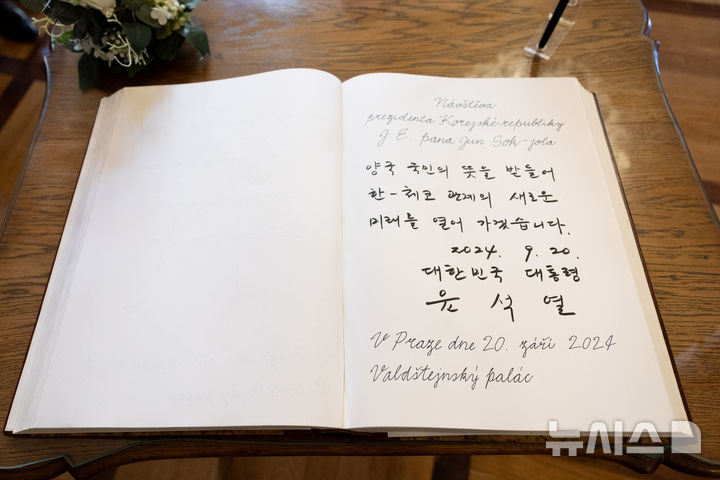 Návštěva
prezidenta Korejské republiky
J. E. pana Jun Sok-jola
양국 국민의 뜻을 받들어
한-체코 관계의 새로운
미래를 열어 가겠습니다.
2024. 9. 20.
대한민국 대통령
윤 석 열
V Praze dne 20. září 2024
Valdštejnský palác
뉴시스